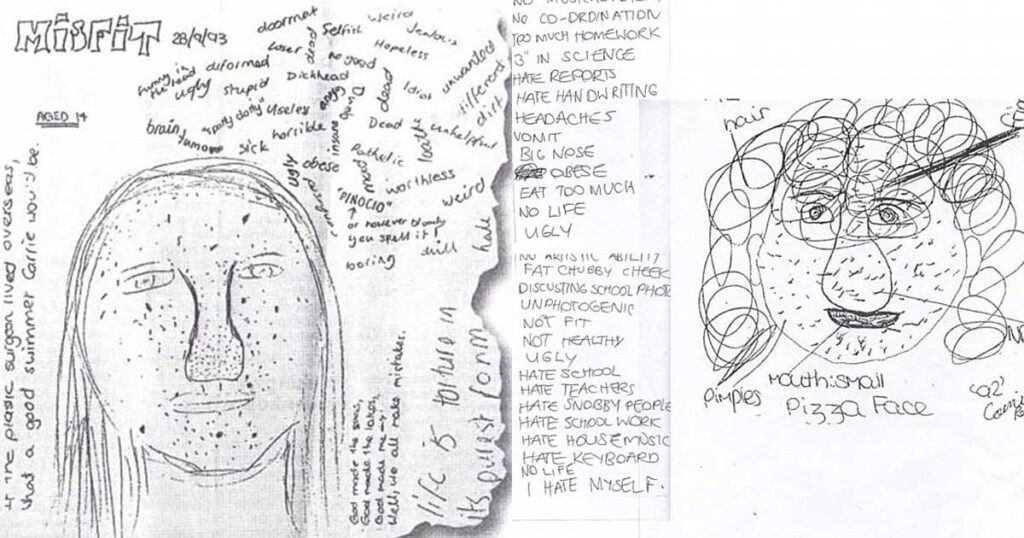 MISFIT 28/9/93
AGED 14
If the plastic surgeon lived overseas,
what a good swimmer Carrie would be.
doormat
weird
Selfish
Jealous
Loser
dead
Hopeless
no good
unwanted
different
dirt
funny in
the head
deformed
ugly
stupid
Dickhead
dead
Idiot
"party doing"
Useless
Dead
unhelpful
brain
tumour
sick
horrible
insane
Pathetic
loathe
ugly
obese
mad
worthless
weird
"PINOCIO"
or however bloody
you spell it
dull
boring
hate
God made the sea,
God made the lakes,
God made me —
Well, we all make mistakes.
life is torture in
its purest form
NO CO-ORDINATION
TOO MUCH HOMEWORK
"3" IN SCIENCE
HATE REPORTS
HATE HANDWRITING
HEADACHES
VOMIT
BIG NOSE
OBESE
EAT TOO MUCH
NO LIFE
UGLY
NO ARTISTIC ABILITY
FAT CHUBBY CHEEK
DISCUSTING SCHOOL PHOTO
UNPHOTOGENIC
NOT FIT
NOT HEALTHY
UGLY
HATE SCHOOL
HATE TEACHERS
HATE SNOBBY PEOPLE
HATE SCHOOL WORK
HATE HOUSEMUSIC
HATE KEYBOARD
NO LIFE
I HATE MYSELF.
hair
Pimples
mouth:small
Pizza Face